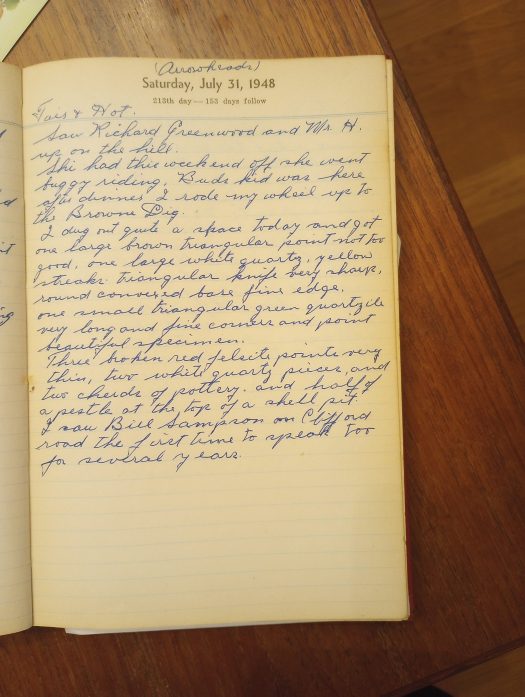 (Arrowheads)
Saturday, July 31, 1948
213th day — 153 days follow
Fair & Hot.
Saw Richard Greenwood and Mr. H.
up on the hill.
Ski had this weekend off she went
buggy riding. Buds kid was here
after dinner I rode my wheel up to
the Browne Dig.
I dug out quite a space today and got
one large brown triangular point not too
good, one large white quartz, yellow
streaks triangular knife very sharp,
round convexed base fine edge.
one small triangular green quartzite
very long and fine corners and point
beautiful specimen.
Three broken red felsite points very
thin, two white quartz pieces, and
two cherds of pottery. and half of
a pestle at the top of a shell pit.
I saw Bill Sampson on Clifford
road the first time to speak too
for several years.